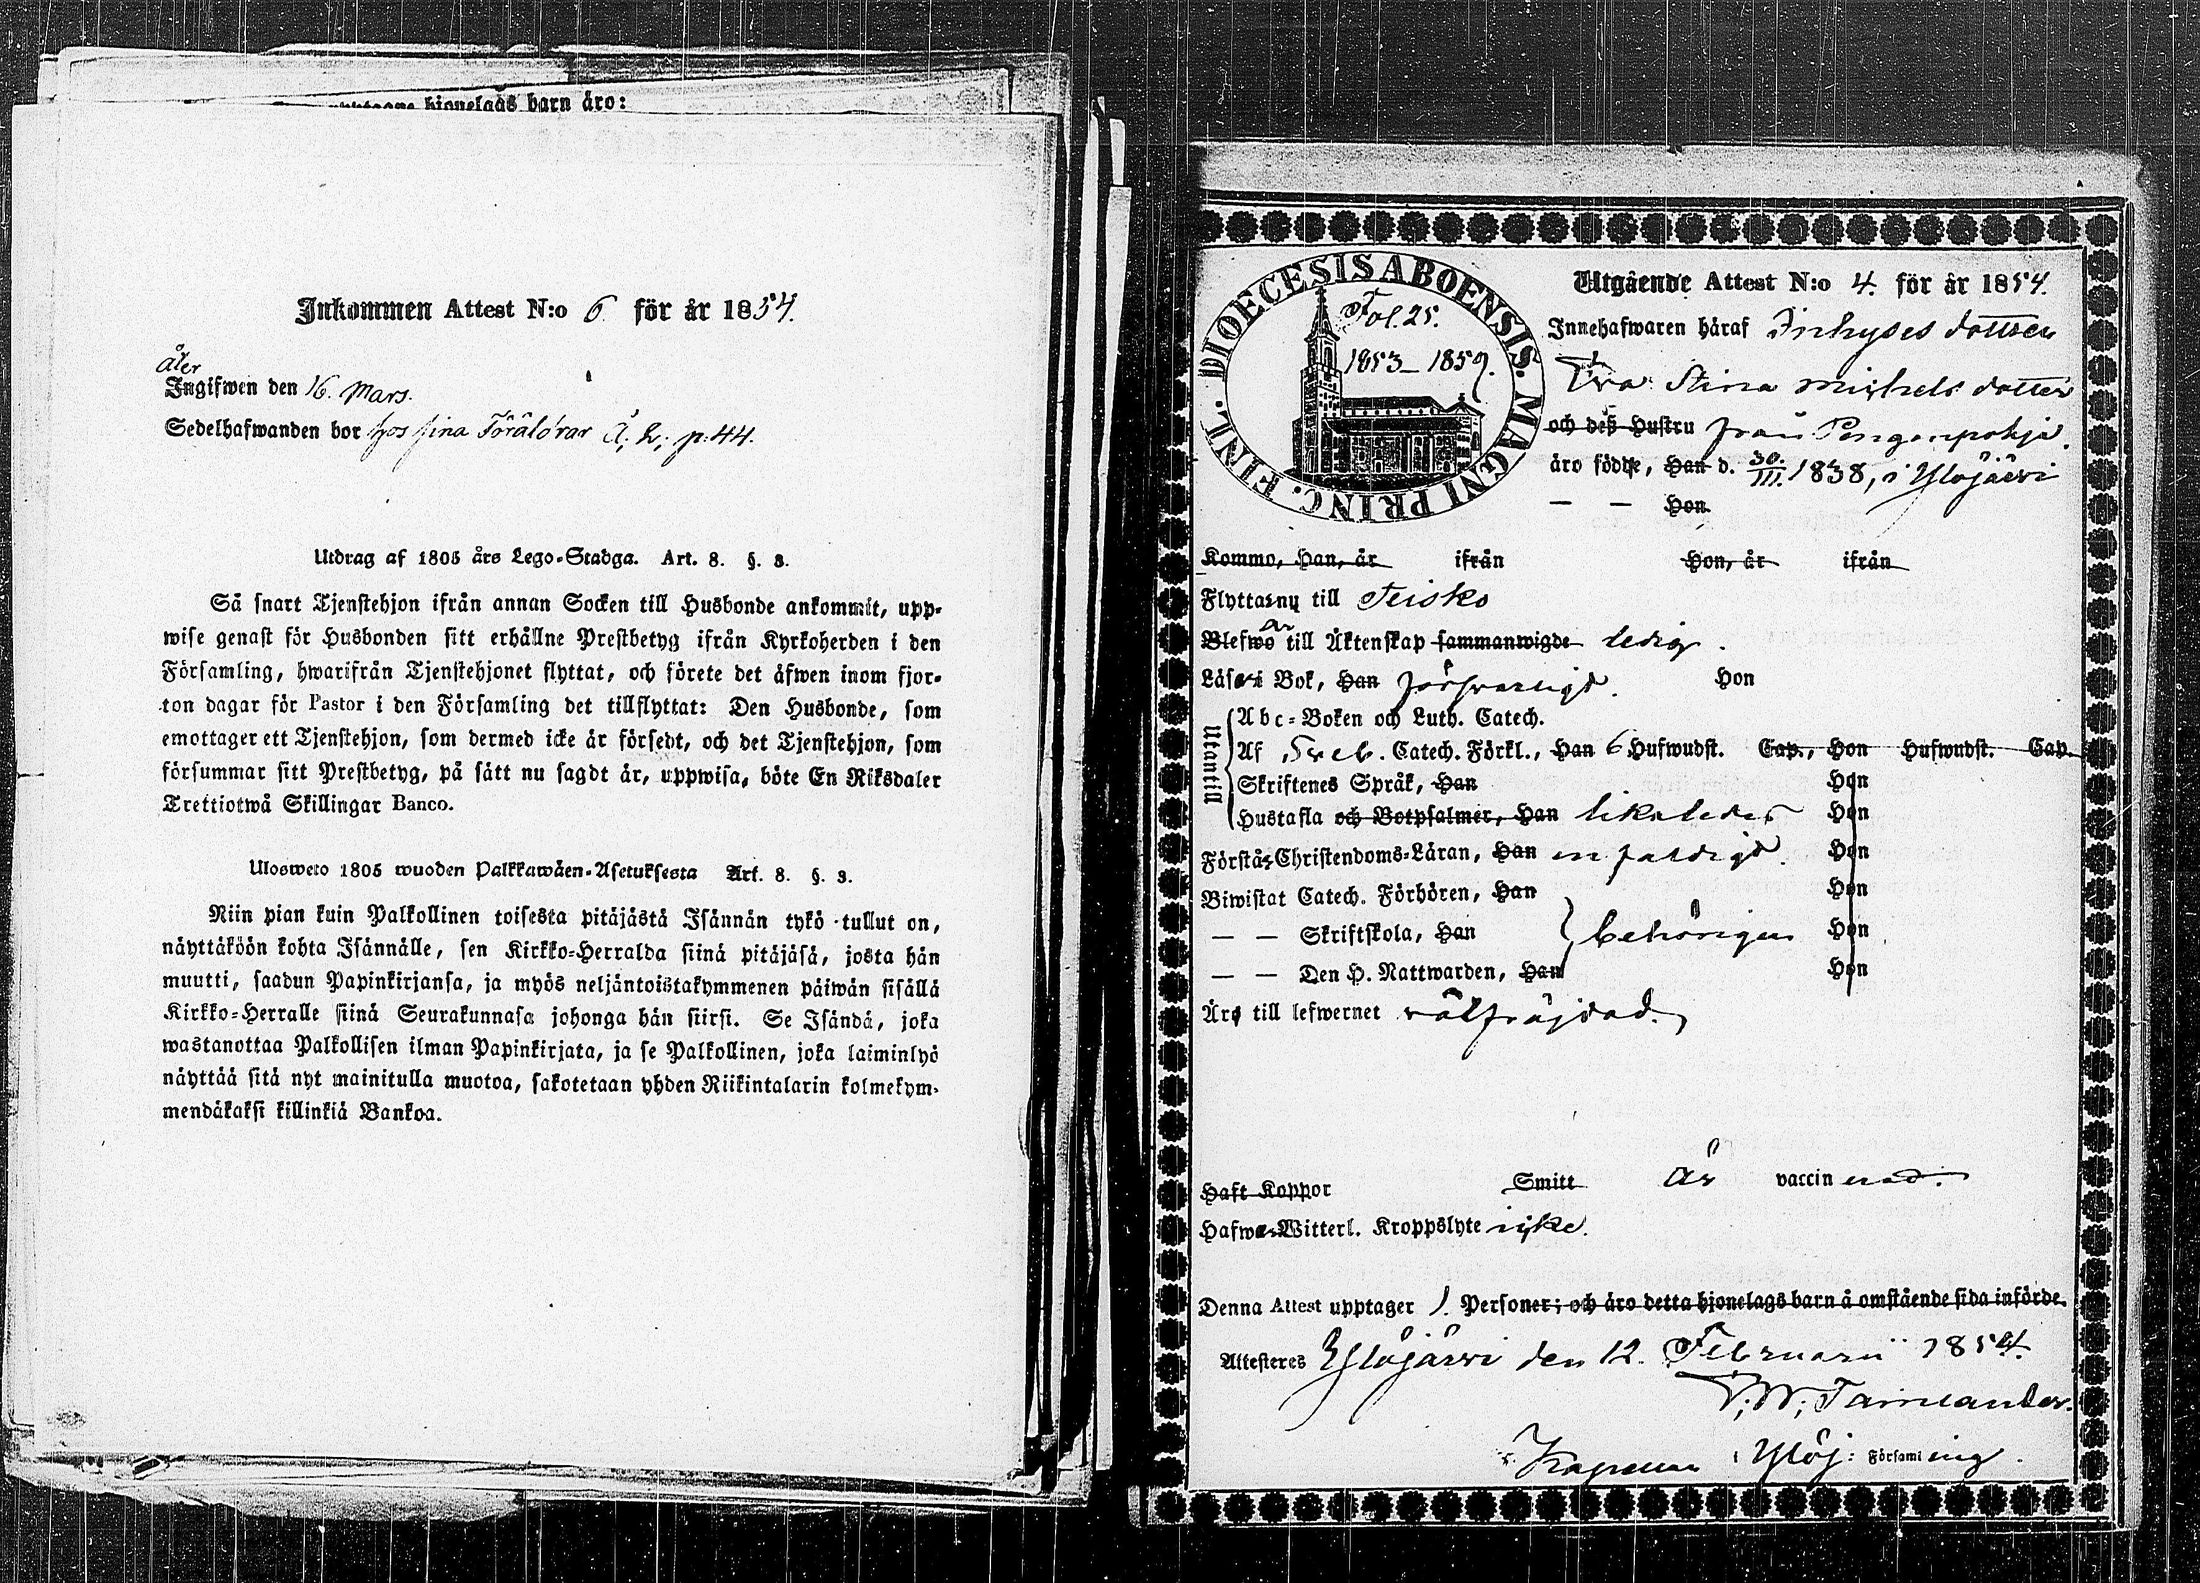 hjonelags barn äro:
Inkommen Attest N:o 6. för år 1854.
åter
Ingifwen den 16. Mars.
Sedelhafwanden bor hos sina Föräldrar Å; p: 44.
Utdrag af 1805 års Lego-Stadga. Art. 8. §. 3.
Så snart Tjenstehjon ifrån annan Socken till Husbonde ankommit, upp-
wise genast för Husbonden sitt erhållne Prestbetyg ifrån Kyrkoherden i den
Församling, hwarifrån Tjenstehjonet flyttat, och förete det äfwen inom fjor-
ton dagar för Pastor i den Församling det tillflyttat: Den Husbonde, som
emottager ett Tjenstehjon, som dermed icke är försedt, och det Tjenstehjon, som
försummar sitt Prestbetyg, på sätt nu sagdt är, uppwisa, böte En Riksdaler
Trettiotwå Skillingar Banco.
Ulosweto 1805 wuoden Palkkawäen-Asetuksesta Art. 8. §. 3.
Niin pian kuin Palkollinen toisesta pitäjästä Isännän tykö tullut on,
näyttäköön kohta Isännälle, sen Kirkko-Herralda siinä pitäjäsä, josta hän
muutti, saadun Papinkirjansa, ja myös neljäntoistakymmenen päiwän sisällä
Kirkko-Herralle siinä Seurakunnasa johonga hän siirsi. Se Isändä, joka
wastanottaa Palkollisen ilman Papinkirjata, ja se Palkollinen, joka laiminlyö
näyttää sitä nyt mainitulla muotoa, sakotetaan yhden Riikintalarin kolmekym-
mendäkaksi killinkiä Bankoa.
DIOECESIS ABOENSIS. MAGNI PRINC. FINL.
Fol. 25.
1853–1859.
Utgående Attest N:o 4. för år 1854.
Innehafwaren häraf Inhyses dottren
Eva Stina Michels dotter
och deß Hustru från Pengonpohja.
äro födde, Han d. 30/III. 1838, i Ylöjärvi
— — Hon
Kommo, Han, år ifrån Hon, år ifrån
Flyttar nu till Teisko
Blefwo är till Äktenskap sammanwigde ledig.
Läser i Bok, Han försvarligt. Hon
Utantill
Abc-Boken och Luth. Catech.
Af Sveb. Catech. Förkl., Han 6 Hufwudst. Cap., Hon Hufwudst. Cap.
Skriftenes Språk, Han Hon
Hustafla och Botpsalmer, Han likaledes Hon
Förstår Christendoms-Läran, Han enfaldigt. Hon
Biwistat Catech. Förhören, Han Hon
— — Skriftskola, Han behörigen Hon
— — Den H. Nattwarden, Han Hon
Äro till lefwernet välfräjdad.
Haft Koppor Smitt Är vaccinerad.
Hafwer Witterl. Kroppslyte icke.
Denna Attest upptager 1. Personer; och äro detta hjonelags barn å omstående sida införde.
Attesteres Ylöjärvi den 12. Februarii 1854.
Kapellan i Ylöj: Församling.